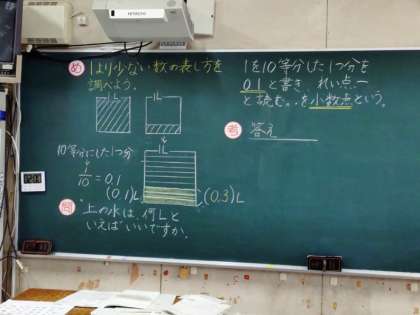 HITACHI
め 1より少ない数の表し方を
調べよう。
1L
1L
10等分にした1つ分
1/10 = 0.1
(0.1)L
(0.3)L
問 上の水は、何Lと
いえばいいですか。
1を10等分した1つ分を
0.1と書き、れい点一
と読む。.を小数点という。
考 答え